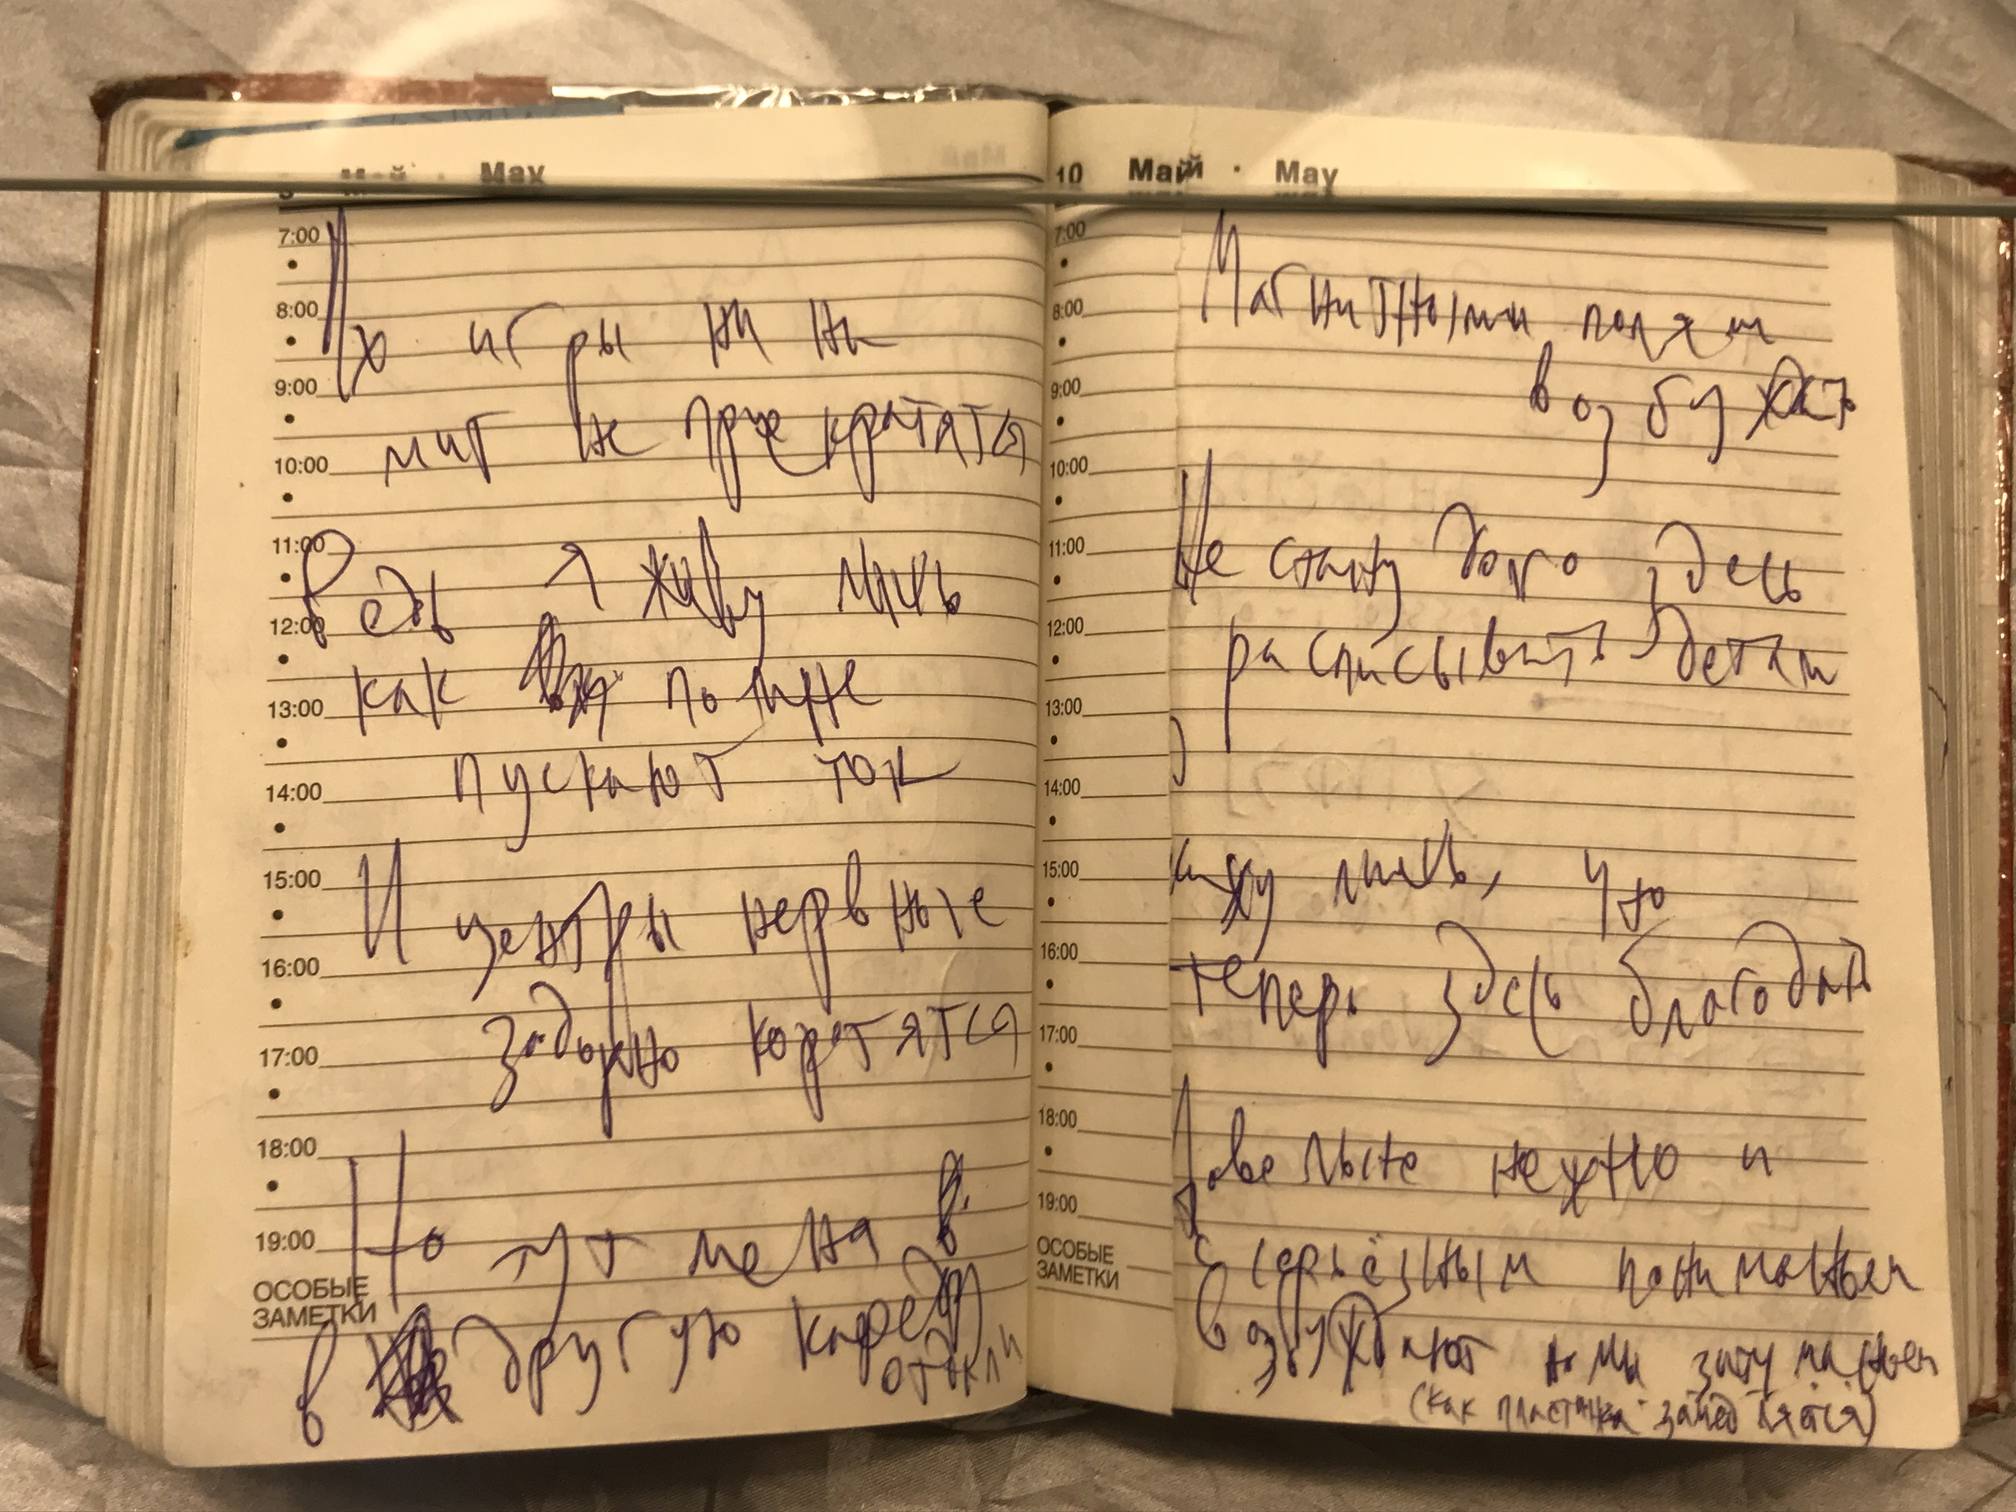 Май · May
7:00
8:00
9:00
10:00
11:00
12:00
13:00
14:00
15:00
16:00
17:00
18:00
19:00
ОСОБЫЕ
ЗАМЕТКИ
Их игры ни на
миг не прекратятся
Ведь я живу лишь
как по мне
пускают ток
И центры нервные
задорно коротятся
Но тут меня в
в другую
отдали
10 Май · May
7:00
8:00
9:00
10:00
11:00
12:00
13:00
14:00
15:00
16:00
17:00
18:00
19:00
ОСОБЫЕ
ЗАМЕТКИ
Магнитными полями
возбуждать
Не стану здесь
расписывать детали
лишь, что
теперь здесь благодать
нежно и
с серьёзным пониманьем
возбуждают
(как пластинка замедляется)